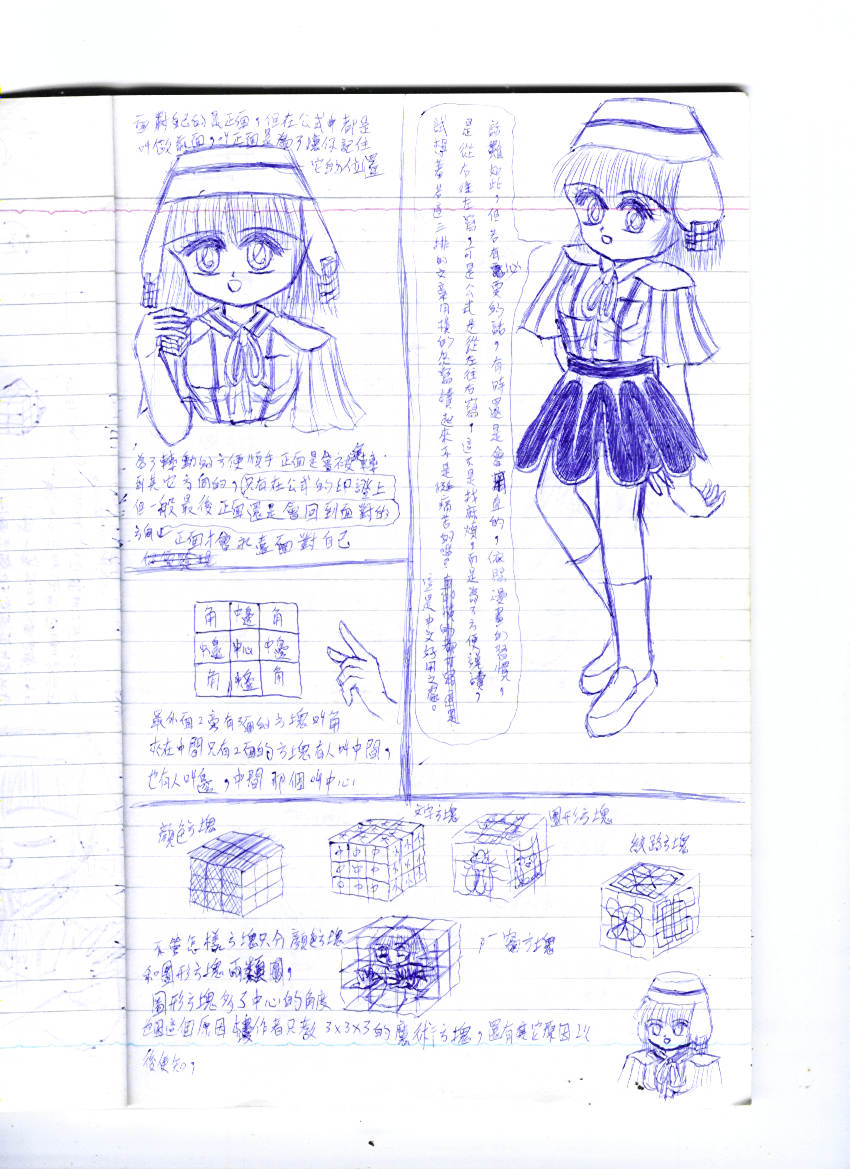 面對自己的是正面，但在公式中都是
叫做前面，以正面是為了讓你記住
它的位置
話雖如此，但若有必要的話，有時還是會用直的，依照漫畫的習慣，
是從右往左寫，可是公式是從左往右寫，這不是找麻煩，而是為了方便識讀，
試想若
這三排的文章用橫的
讀起來不是
痛苦的嗎？
這是中文好用之處。
為了轉動的方便順手正面是會被轉
到其它方面的，只有在公式的印證上
但一般最後正面還是會回到面對的
方向
正面才會永遠面對自己
角 中邊 角
中邊 中心 中邊
角 中邊 角
最外面2旁有3面的方塊叫角
夾在中間只有2面的方塊有人叫中間，
也有人叫邊，中間那個叫中心
顏色方塊
文字方塊
圖形方塊
紋路方塊
中 中 中
中 中 中
中 中 中
不管怎樣方塊只分顏色方塊
和圖形方塊兩類，
圖形方塊多了中心的角度
也因這個原因讓作者只教3×3×3的魔術方塊，還有其它原因以
後便知。